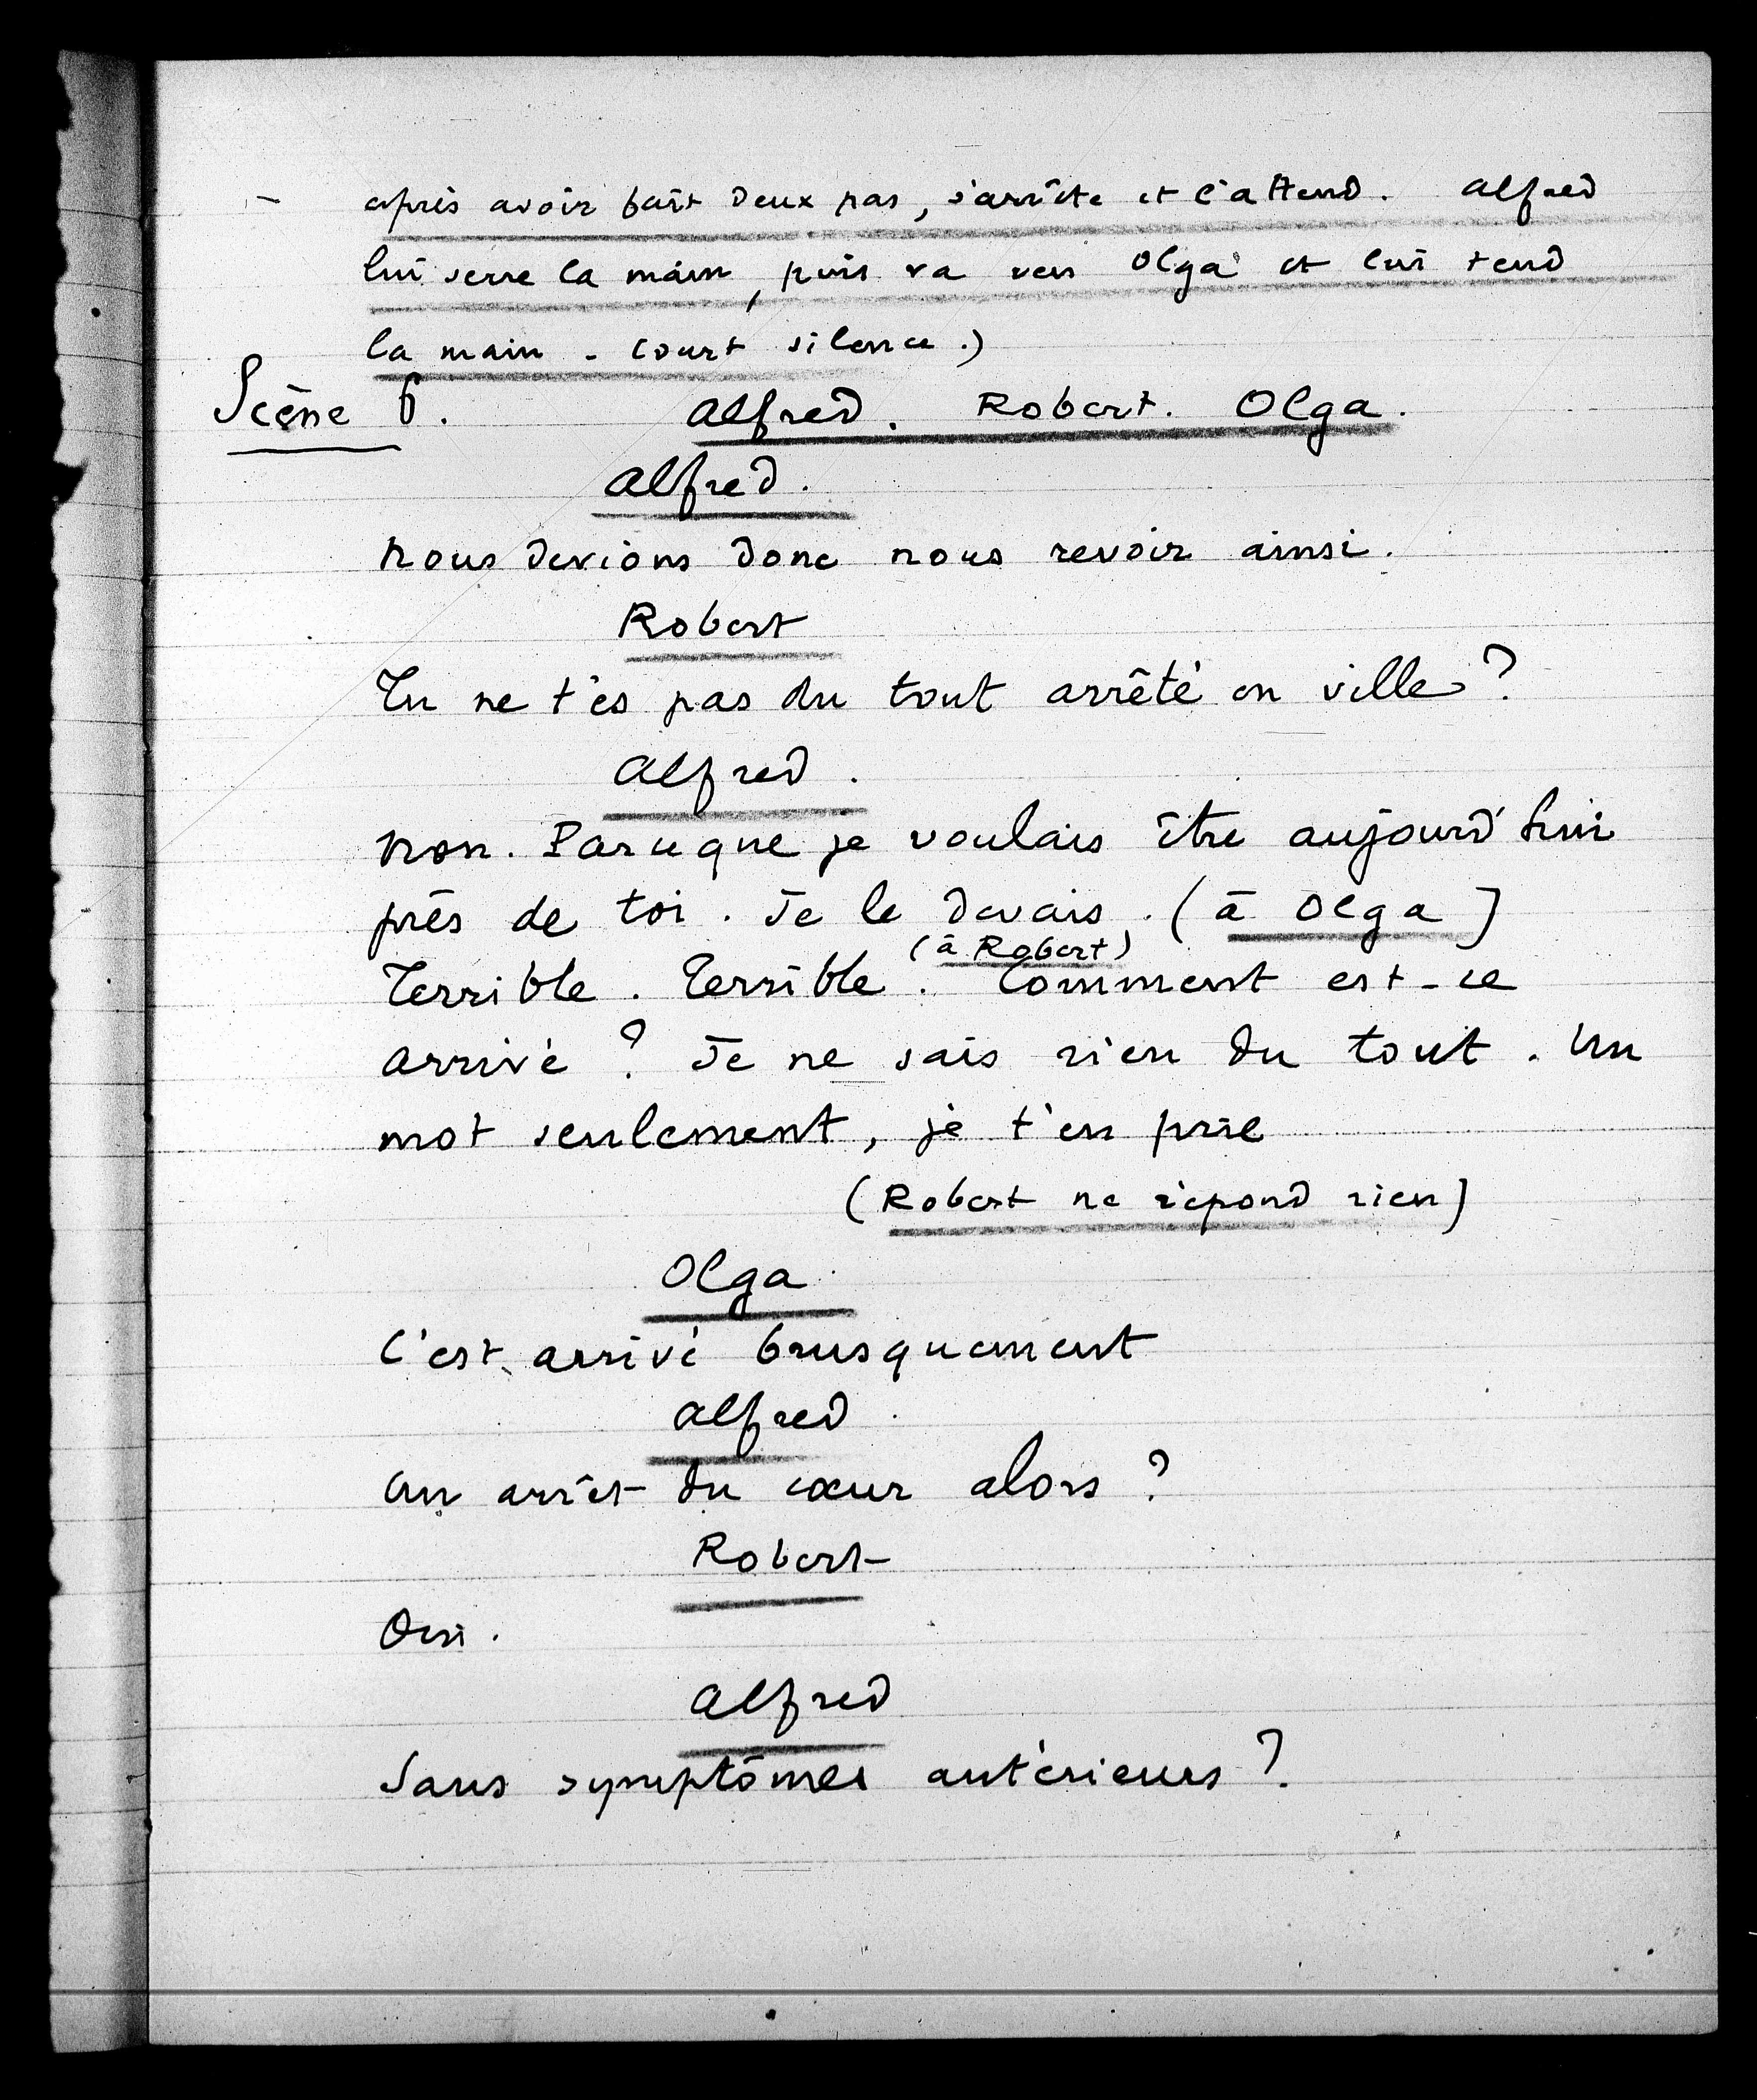 après avoir fait deux pas, s'arrête et l'attend. Alfred
lui serre la main, puis va vers Olga et lui tend
la main. Court silence.)
Scène 6. Alfred. Robert. Olga.
Alfred.
Nous devions donc nous revoir ainsi.
Robert
Tu ne t'es pas du tout arrêté en ville ?
Alfred.
Non. Parceque je voulais être aujourd'hui
près de toi. Je le devais. (à Olga)
Terrible. Terrible. (à Robert) Comment est-ce
arrivé ? Je ne sais rien du tout. Un
mot seulement, je t'en prie
(Robert ne répond rien)
Olga.
C'est arrivé brusquement
Alfred.
Un arrêt du cœur alors ?
Robert
Oui.
Alfred
Sans symptômes antérieurs ?